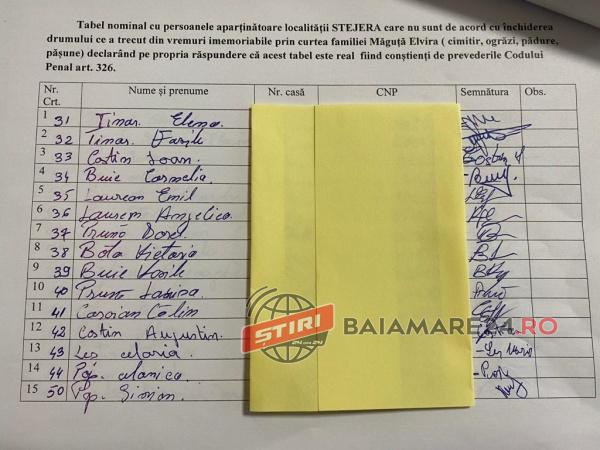 Tabel nominal cu persoanele aparținătoare localității STEJERA care nu sunt de acord cu închiderea
drumului ce a trecut din vremuri imemoriabile prin curtea familiei Măguță Elvira ( cimitir, ogrăzi, pădure,
pășune) declarând pe propria răspundere că acest tabel este real fiind conștienți de prevederile Codului
Penal art. 326.
Nr. Crt. Nume și prenume Nr. casă CNP Semnătura Obs.
1 31 Timar Elena
2 32 Timar Vasile
3 33 Costin Ioan
4 34 Buie Cornelia
5 35 Laurean Emil
6 36 Angelica
7 37 Dorel
8 38 Bota
9 39 Buie Vasile
10 40
11 41 Călin
12 42 Costin Augustin
13 43 Leș Maria
14 44 Pop
15 50 Pop Simion
ȘTIRI
24 ORE 24
BAIAMARE24.RO